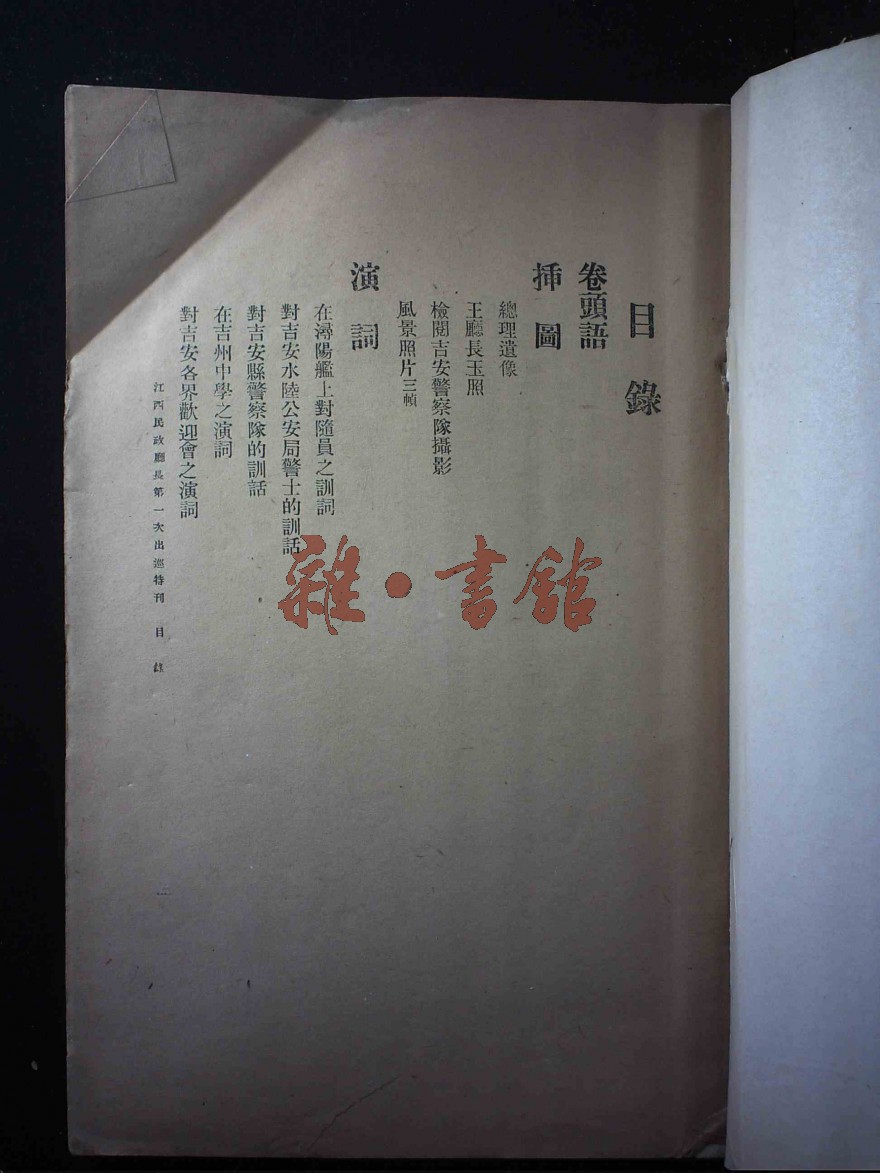 目錄
卷頭語
插圖
總理遺像
王廳長玉照
檢閱吉安警察隊攝影
風景照片三幀
演詞
在潯陽艦上對隨員之訓詞
對吉安水陸公安局警士的訓話
對吉安縣警察隊的訓話
在吉州中學之演詞
對吉安各界歡迎會之演詞
江西民政廳長第一次出巡特刊 目錄
雜·書館